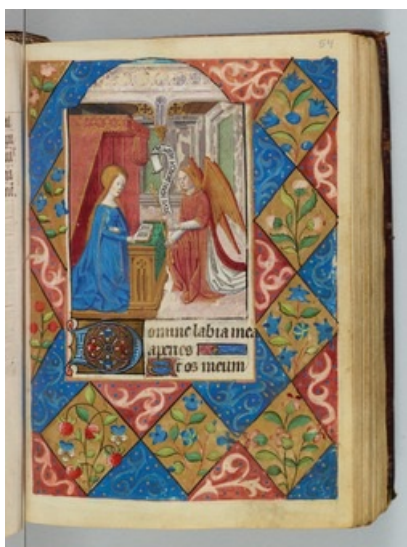 54
Domine labia mea
aperies
Et os meum